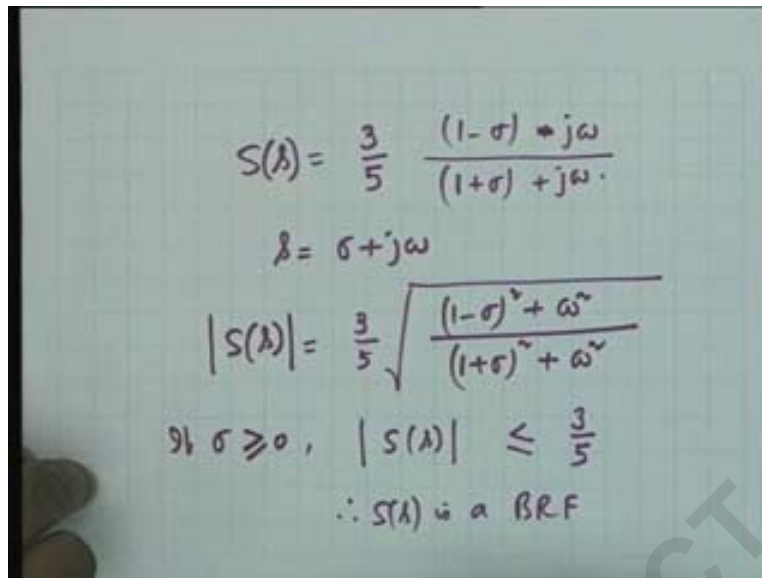 S(s) = 3/5 (1-σ) - jω / (1+σ) + jω.
s = σ+jω
|S(s)| = 3/5 √((1-σ)² + ω² / (1+σ)² + ω²)
If σ ≥ 0, |S(s)| ≤ 3/5
∴ S(s) is a BRF
CT